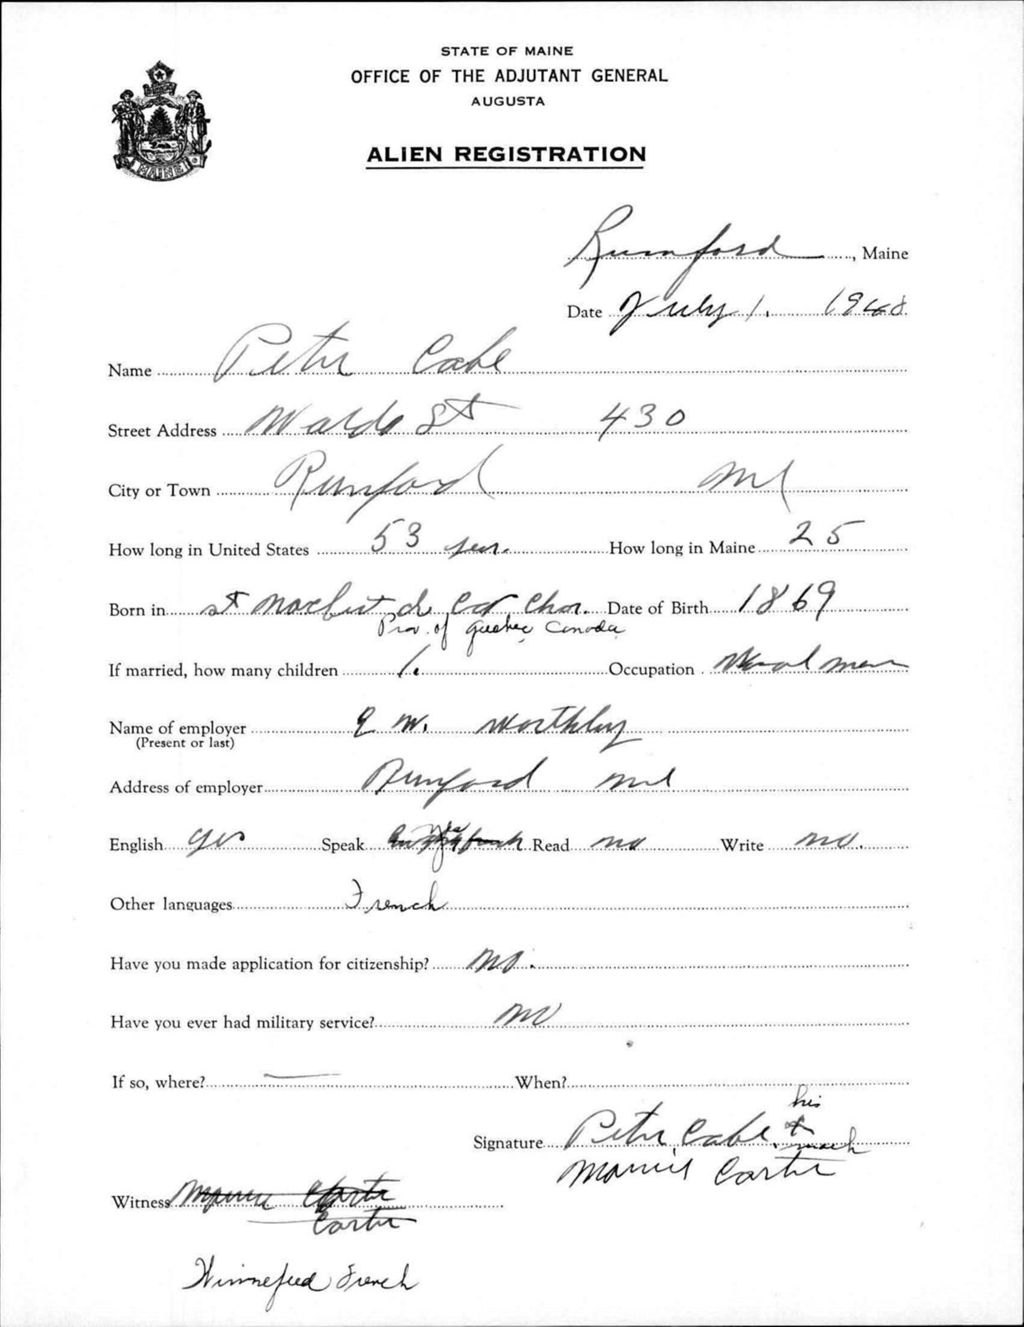 STATE OF MAINE
OFFICE OF THE ADJUTANT GENERAL
AUGUSTA
ALIEN REGISTRATION
MAINE
Rumford, Maine
Date July 1. 1940
Name Peter Cabe
Street Address Waldo St 430
City or Town Rumford Me
How long in United States 53 years. How long in Maine 25
Born in St de Date of Birth 1869
Prov. of Quebec Canada
If married, how many children 1. Occupation man
Name of employer W. Worthley
(Present or last)
Address of employer Rumford Me
English yes Speak yes Read no Write no.
Other languages French
Have you made application for citizenship? no.
Have you ever had military service? no
If so, where? — When?
his
Signature Peter Cabe. + mark
Carter
Witness Carter
Carter
Winnefred French